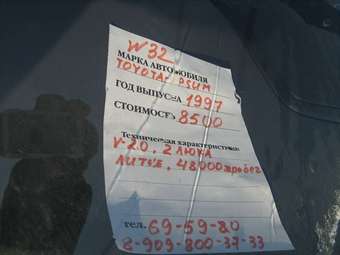 W32
МАРКА АВТОМОБИЛЯ
TOYOTA IPSUM
ГОД ВЫПУСКА 1997
СТОИМОСТЬ 8500
Техническая характеристика
V-2.0. 2 ЛЮКА
ЛИТЬЕ. 48000 пробег
тел. 69-59-80
8-909-800-37-33